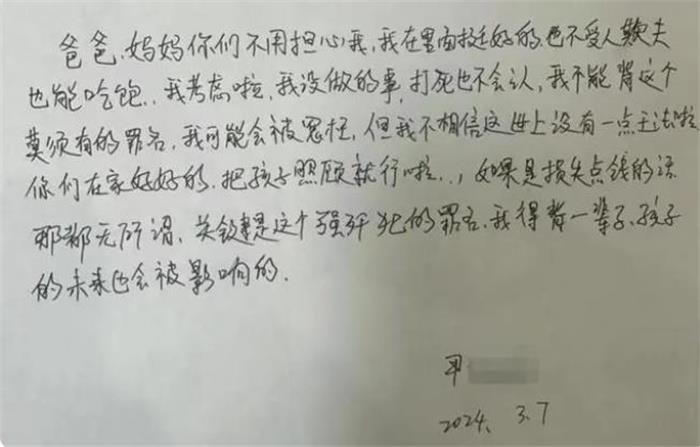 爸爸、妈妈你们不用担心我，我在里面挺好的.也不受人欺夫
也能吃饱.，我考虑啦，我没做的事，打死也不会认，我不能背这个
莫须有的罪名，我可能会被冤枉，但我不相信这世上没有一点王法啦
你们在家好好的.把孩子照顾就行啦..，如果是损失点钱的话
那都无所谓、关键是这个强歼犯的罪名.我得背一辈子.孩子
的未来也会被影响的.
甲
2024. 3.7